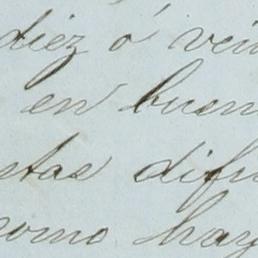 diez ó vei
en buen
stas difu
como hay